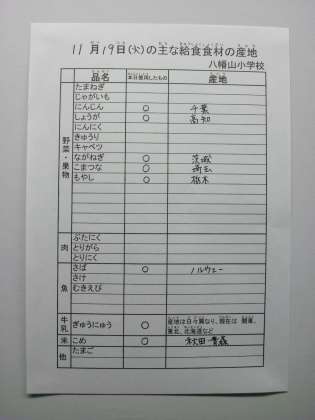 11月19日(火)の主な給食食材の産地
八幡山小学校
品名 本日使用したもの 産地
野菜・果物
たまねぎ
じゃがいも
にんじん ○ 千葉
しょうが ○ 高知
にんにく
きゅうり
キャベツ
ながねぎ ○ 茨城
こまつな ○ 埼玉
もやし ○ 栃木
肉
ぶたにく
とりがら
とりにく
魚
さば ○ ノルウェー
さけ
むきえび
牛乳 ぎゅうにゅう ○ 産地は日々異なり、現在は 関東、
東北、北海道など
米 こめ ○ 秋田 青森
他 たまご